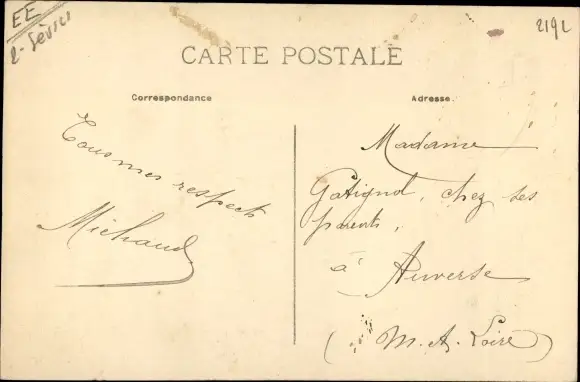 EE
2-Sèvres
2192
CARTE POSTALE
Correspondance
Adresse.
Tous mes respects
Michaud
Madame
Gatignol, chez ses
parents,
à Auverse
(M. et Loire)